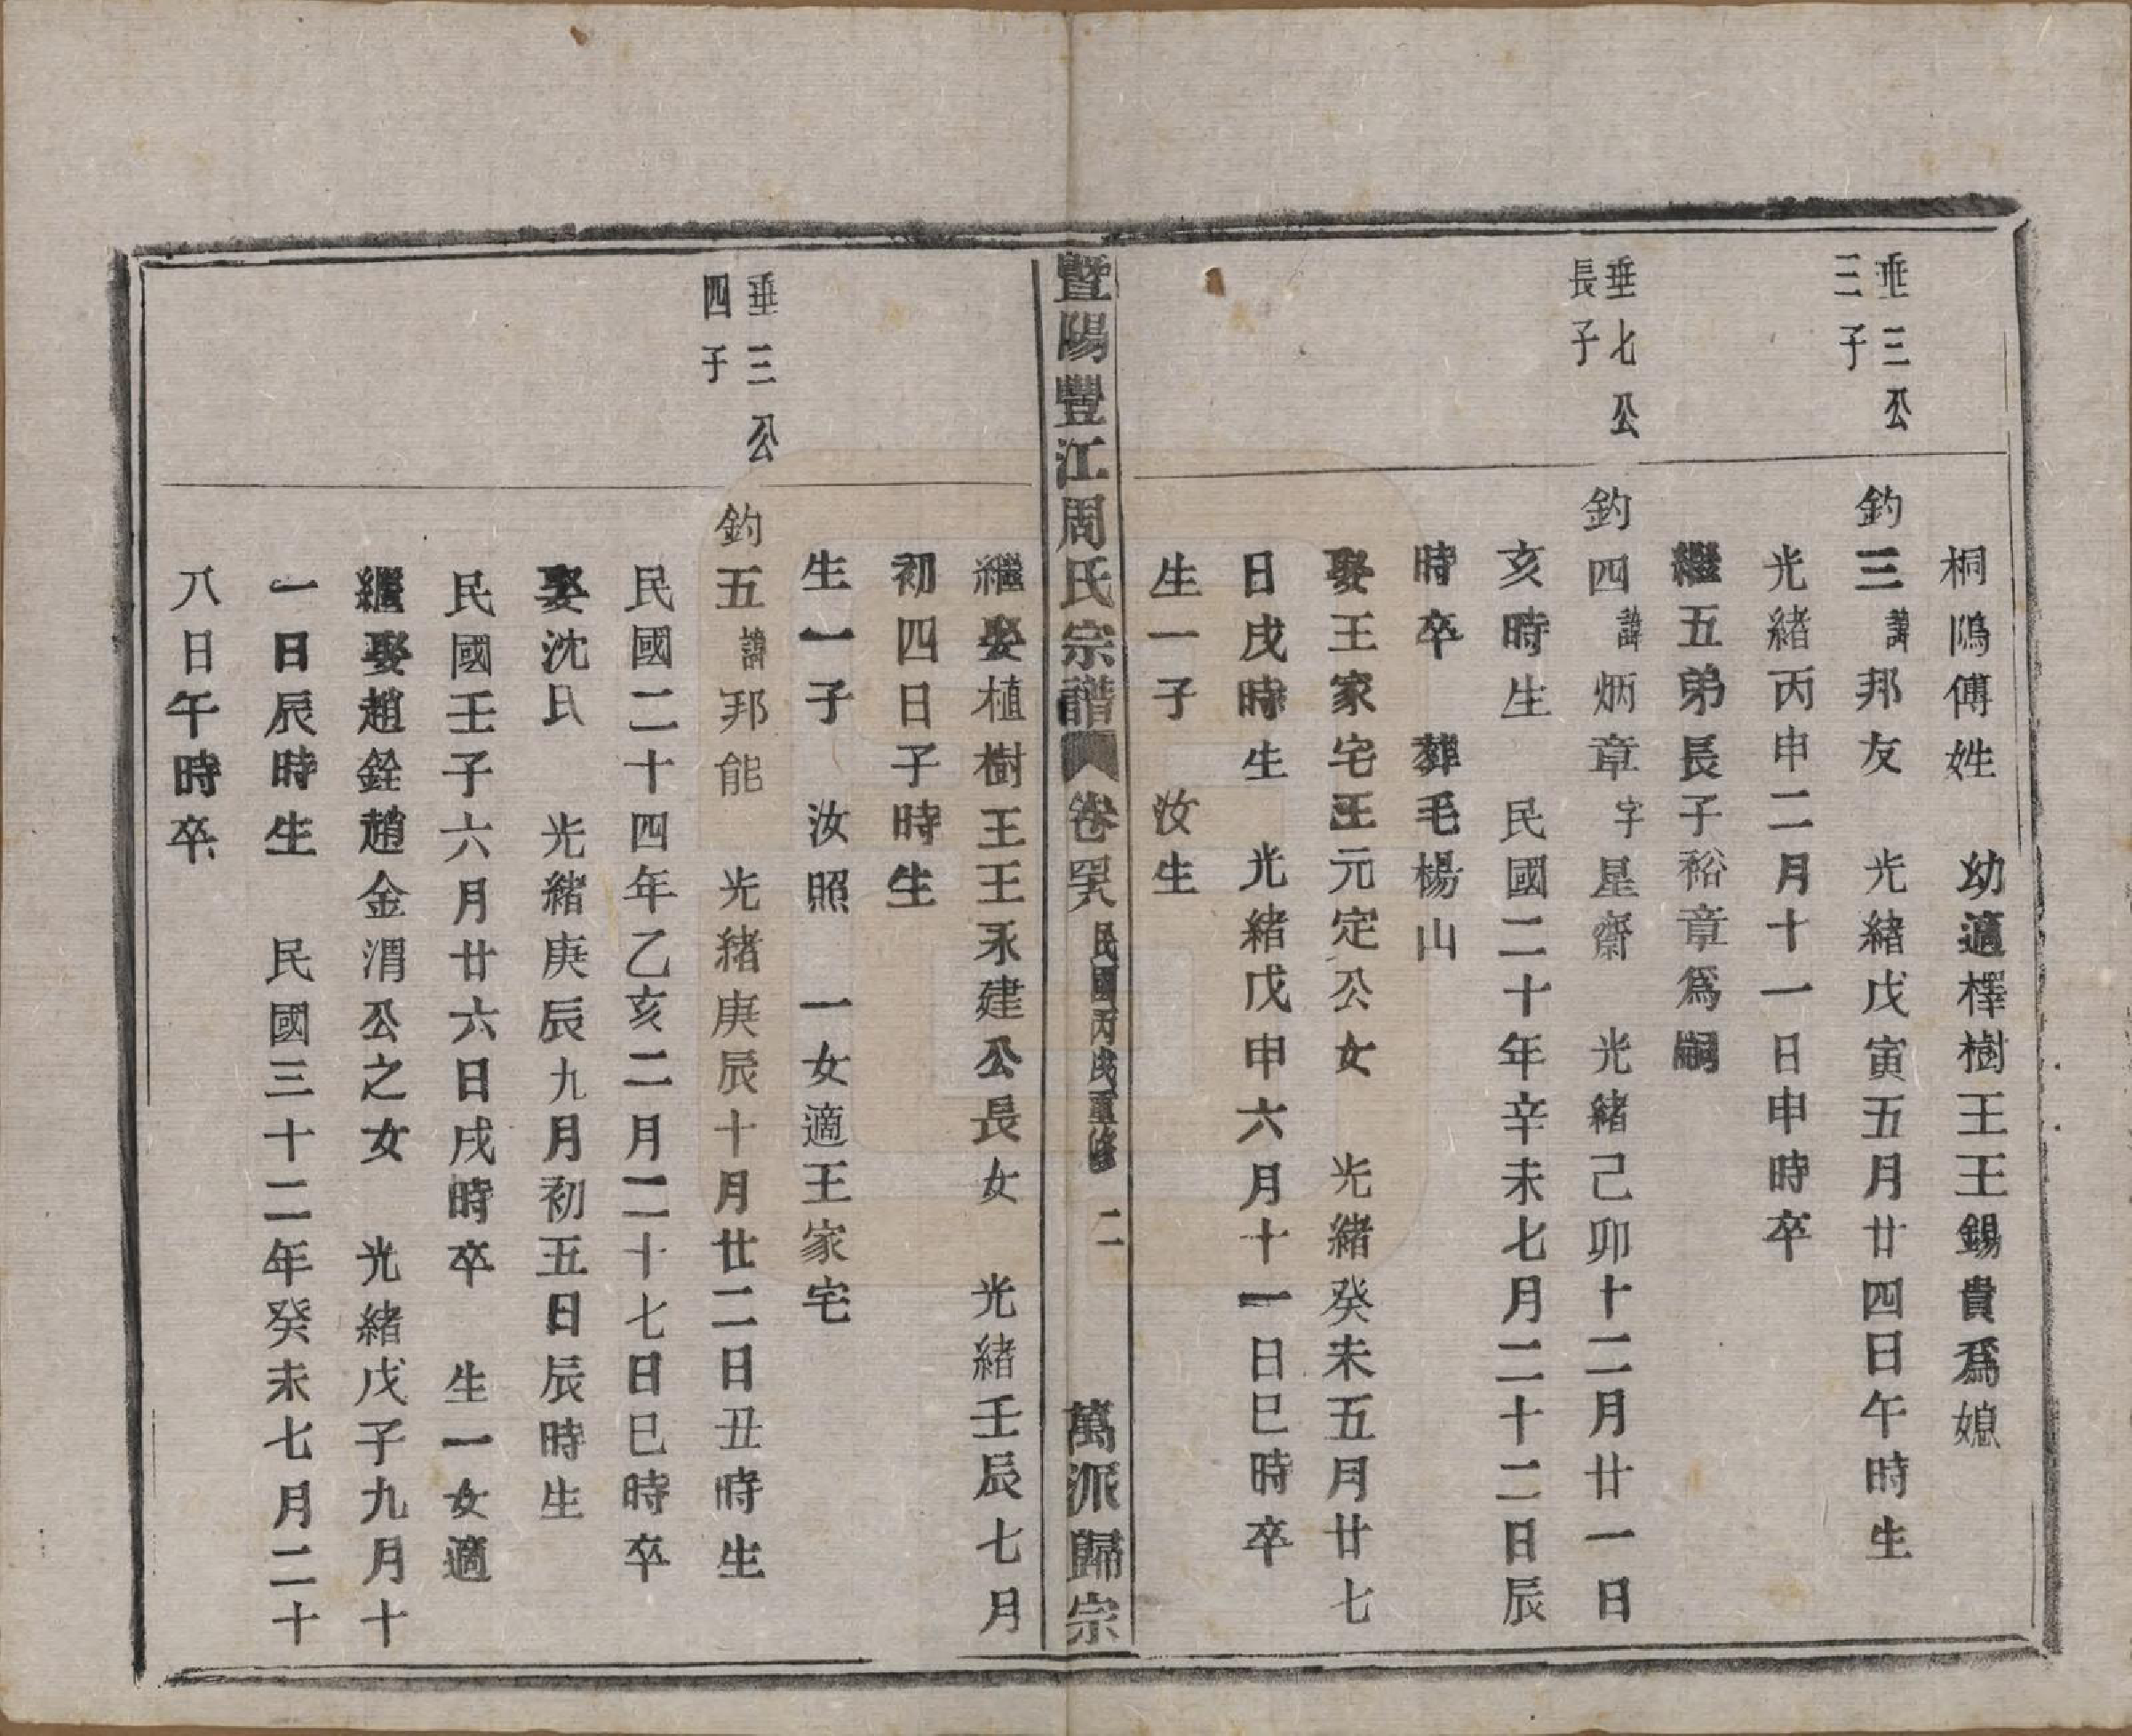 桐隖傅姓　幼適檡樹王王錫貴爲媳
垂三公
三子
釣三諱邦友　光緒戊寅五月廿四日午時生
光緒丙申二月十一日申時卒
繼五弟長子裕章爲嗣
垂七公
長子
釣四諱炳章字星齋　光緒己卯十二月廿一日
亥時生　民國二十年辛未七月二十二日辰
時卒　葬毛楊山
娶王家宅王元定公女　光緒癸未五月廿七
日戌時生　光緒戊申六月十一日巳時卒
生一子　汝生
暨陽豐江周氏宗譜　卷罘　民國丙戌重修　二　萬派歸宗
繼娶植樹王王永建公長女　光緒壬辰七月
初四日子時生
生一子　汝照　一女適王家宅
垂三公
四子
釣五諱邦能　光緒庚辰十月廿二日丑時生
民國二十四年乙亥二月二十七日巳時卒
娶沈氏　光緒庚辰九月初五日辰時生
民國壬子六月廿六日戌時卒　生一女適
繼娶趙銓趙金渭公之女　光緒戊子九月十
一日辰時生　民國三十二年癸未七月二十
八日午時卒